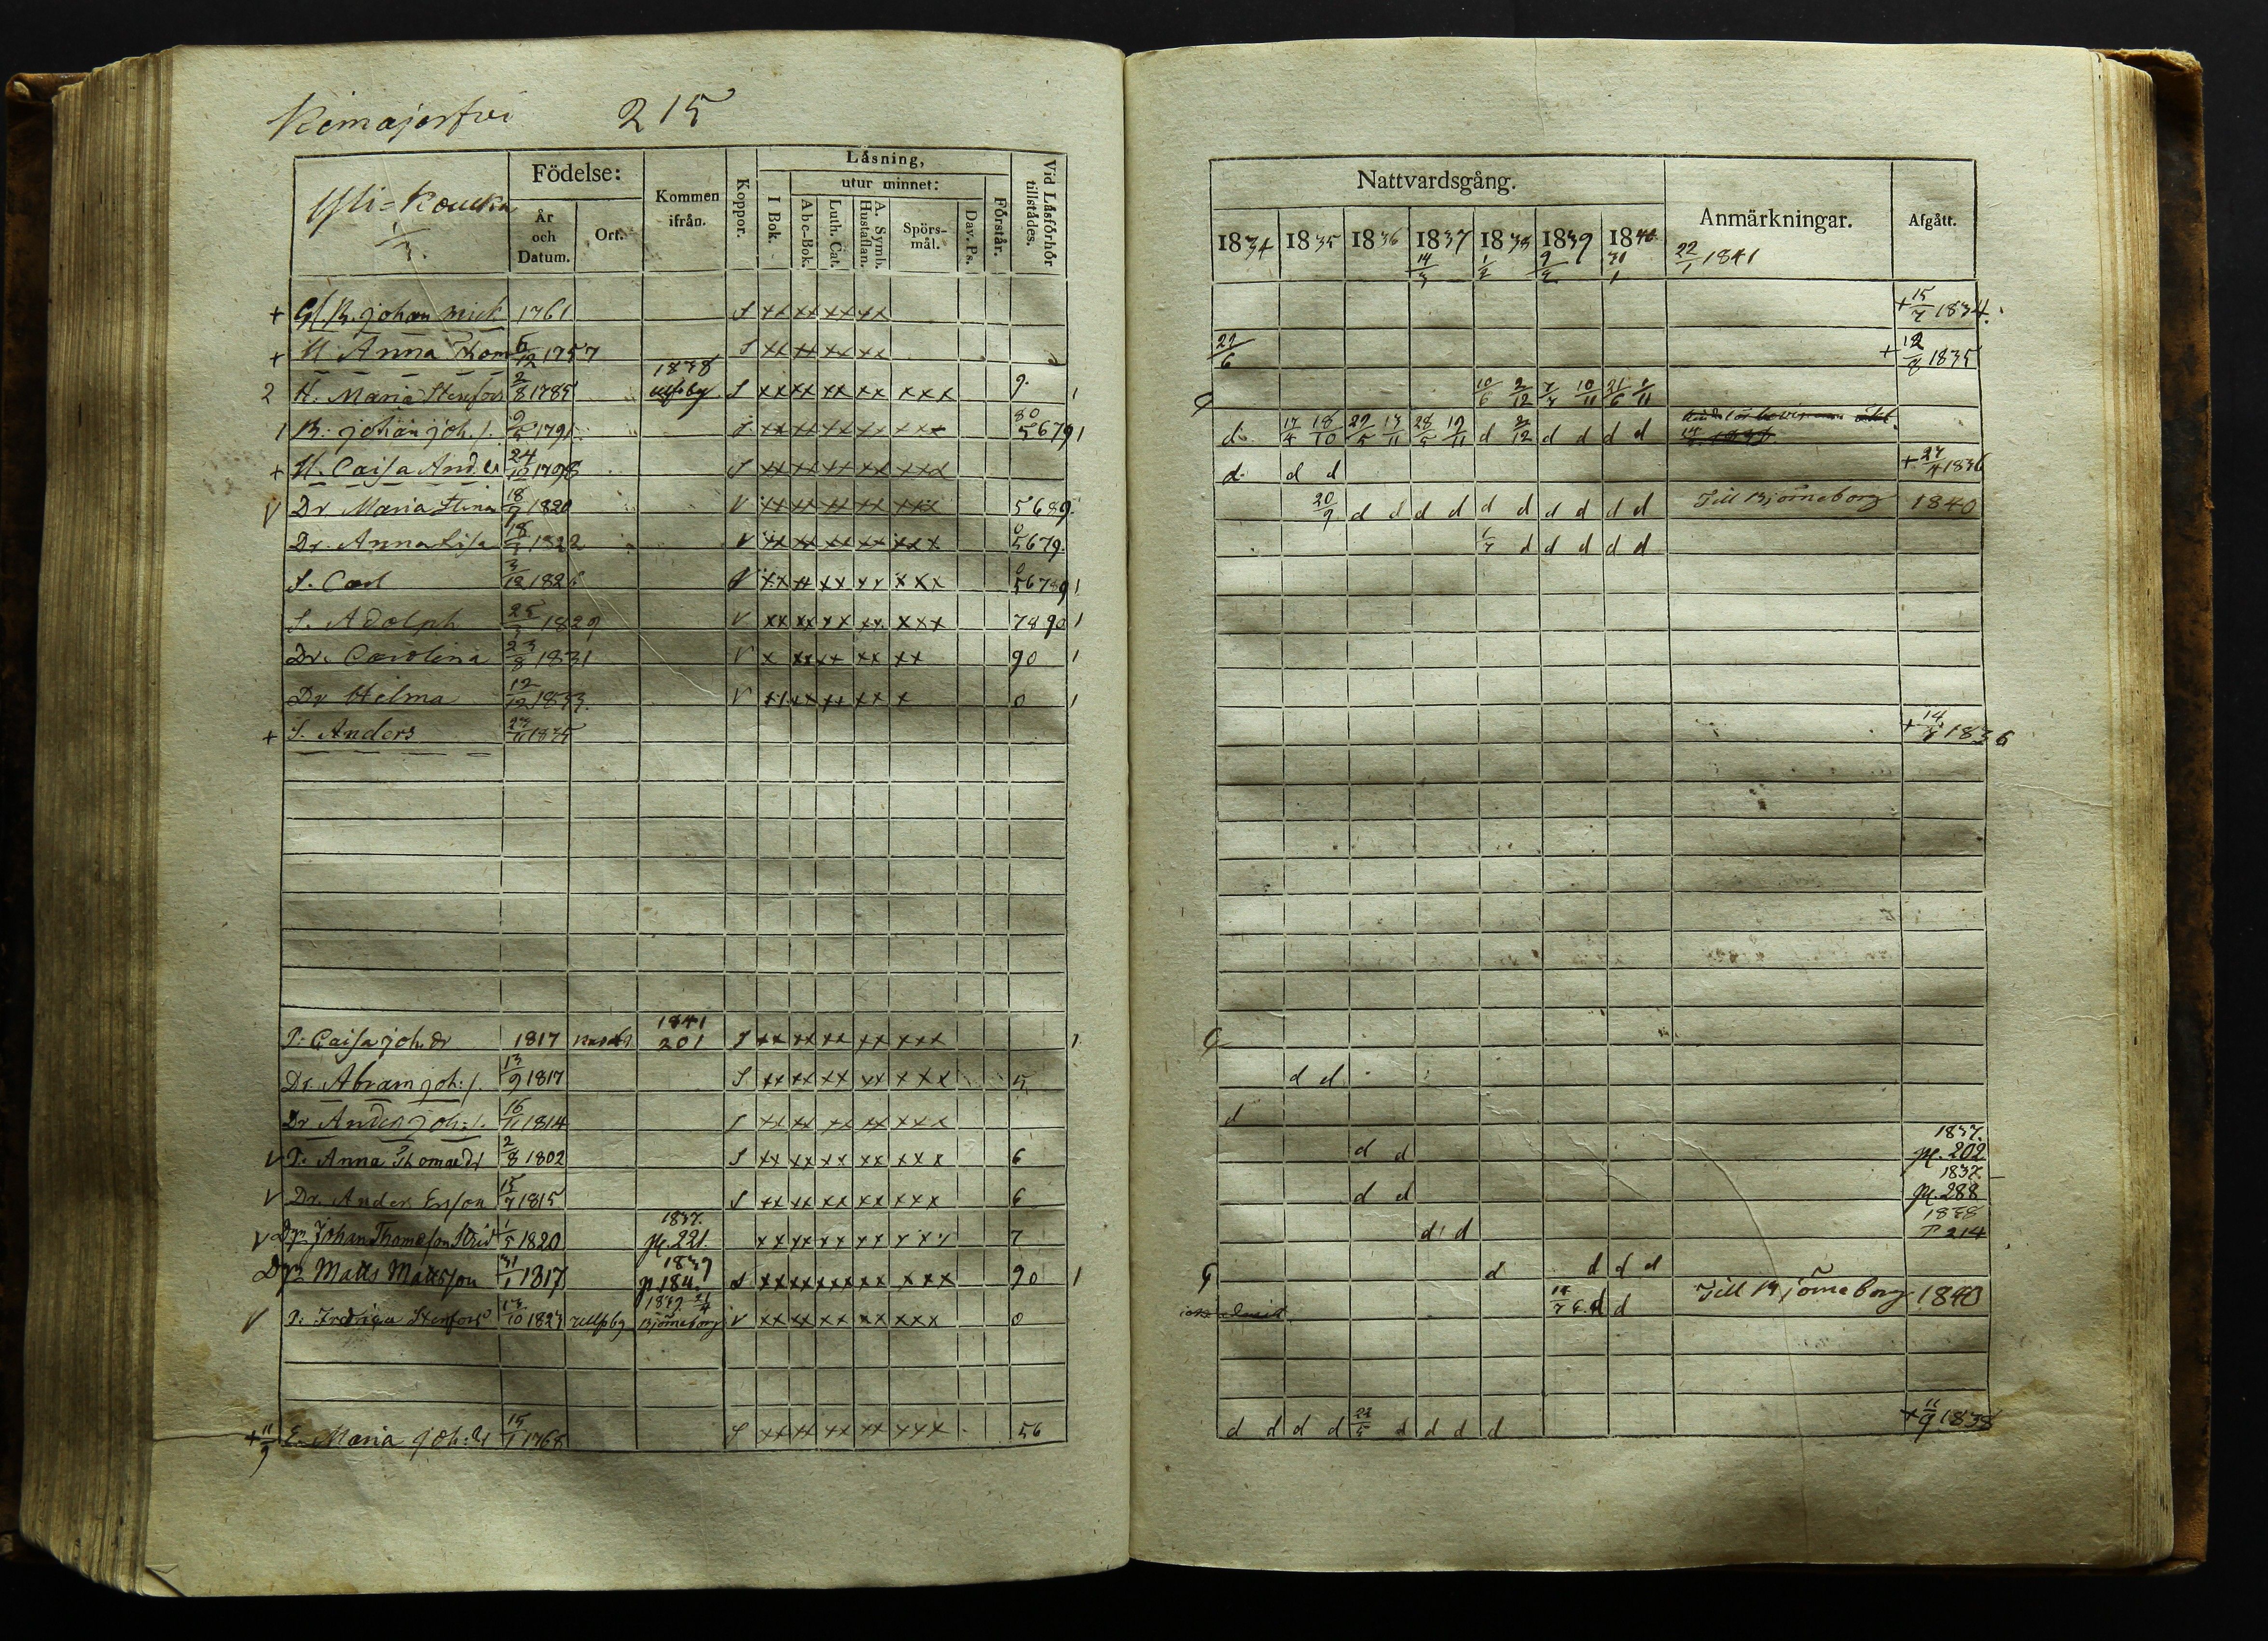 215
Yli=Koucka
1/3.
Födelse:
År och Datum.
Ort.
Kommen ifrån.
Koppor.
Läsning,
I Bok.
utur minnet:
Abc-Bok.
Luth. Cat.
A. Symb. Hustaflan.
Spörs-mål.
Dav. Ps.
Förstår.
Vid Läsförhör tillstädes.
+ Gl. B. Johan Mick 1761 S xx xx xx xx
+ H. Anna Thom 6/12 1757 S xx xx xx xx
1838
2 H. Maria Stenfors 2/8 1785 Ulfsby S xx xx xx xx xxx 9. 1
80
1 B. Johan Joh. s. 9/5 1791 S xx xx xx xx xxx 5679 1
+ H. Caisa And. dr 24/10 1798 S xx xx xx xx xxx
V Dr. Maria Stina 18/9 1820 V xx xx xx xx xxx 5689.
0
Dr. Anna Lisa 1822 V xx xx xx xx xxx 5679.
0
S. Carl 3/12 1826 V xx xx xx xx xxx 56789 1
S. Adolph 25/ 1829 V xx xx xx xx xxx 7890 1
Dr. Carolina 23/8 1831 V x xx xx xx xx 90 1
Dr Helma 12/12 1833. V xx xx xx xx x 0 1
+ S. Anders 1835
1841
P. Caisa Joh. dr 1817 201 S xx xx xx xx xxx 1
Dr. Abram Joh: s. 13/9 1817 S xx xx xx xx xxx 5
Dr Anders Joh: s. 16/11 1814 S xx xx xx xx xxx
V P. Anna Thomædr 2/8 1802 S xx xx xx xx xxx 6
V Dr. Anders Ersson 15/7 1815 S xx xx xx xx xxx 6
1837.
V Dr. Johan Thomasson Strid 1/5 1820 pg. 221. xx xx xx xx xxx 7
1839
Dr Matts Mattsson 31/1 1817 p 184. S xx xx xx xx xxx 90 1
1839 21/4
V P. Fredrica Stenfors 13/10 1823 Ulfsby Björneborg V xx xx xx xx xxx 0
+ 11/9 E. Maria Joh: dr 15/1 1768 S xx xx xx xx xxx 56
Nattvardsgång.
Anmärkningar.
Afgått.
1834 1835 1836 1837 1838 1839 1840
14/3 1/2 9/2 31/1 22/1 1841
+ 15/7 1834.
+ 12/8 1835
10/6 2/12 10/11 21/6 1/11
d. 17/4 18/10 29/5 13/11 28/5 19/11 d 2/12 d d d d
d. d d + 27/4 1836
20/9. d d d d d d d d d d Till Björneborg 1840
d d d d d
+ 14/ 1836
d d
d
1837.
d d pg. 202
1837.
d d pg. 288
1838
d d P 214
d d d d
d d Till Björneborg 1840
d d d d 22/5 d d d d + 11/9 1838